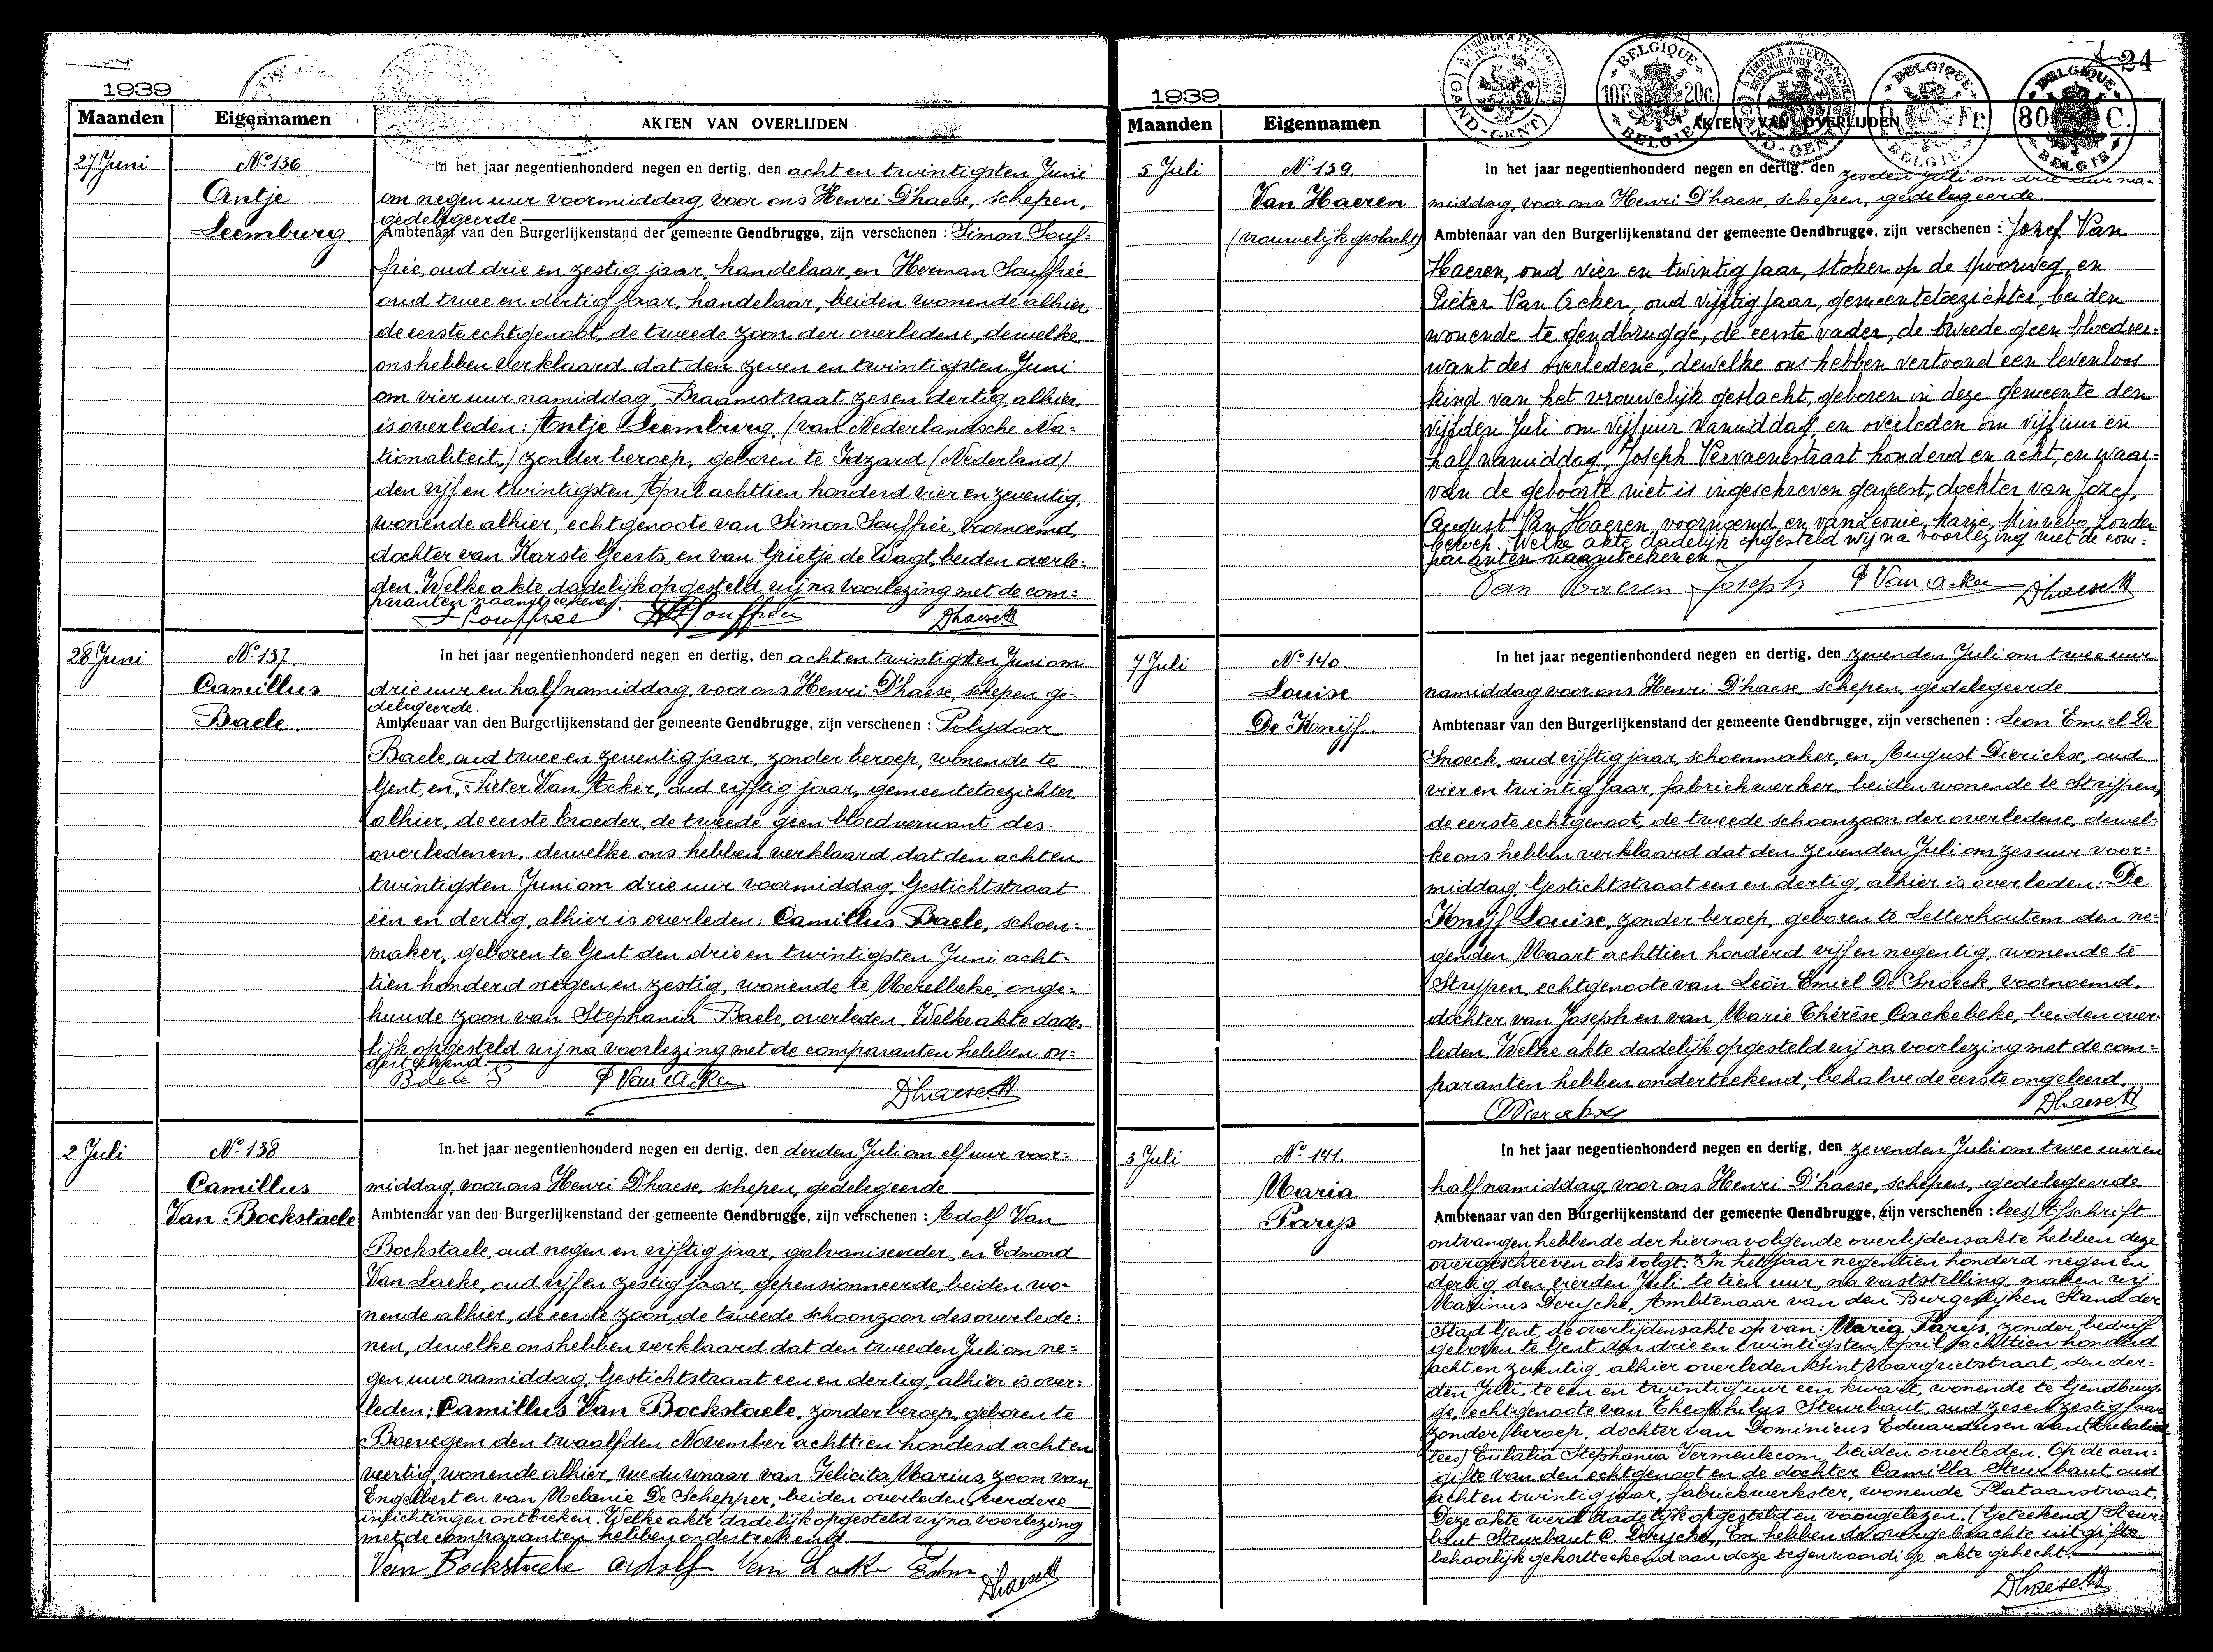 1939
Maanden Eigennamen AKTEN VAN OVERLIJDEN
27 Juni
No 136
Antje
Leemburg
In het jaar negentienhonderd negen en dertig, den acht en twintigsten Juni
om negen uur voormiddag voor ons Henri D'haese, schepen,
gedelegeerde
Ambtenaar van den Burgerlijkenstand der gemeente Gendbrugge, zijn verschenen : Simon Souf=
frée, oud drie en zestig jaar, handelaar, en Herman Souffrée
oud twee en dertig jaar, handelaar, beiden wonende alhier
de eerste echtgenoot, de tweede zoon der overledene, dewelke
ons hebben verklaard dat den zeven en twintigsten Juni
om vier uur namiddag, Braamstraat zes en dertig, alhier,
is overleden : Antje Leemburg, (van Nederlandsche Na=
tionaliteit,) zonder beroep, geboren te Idzard (Nederland)
den vijf en twintigsten April achttien honderd vier en zeventig,
wonende alhier, echtgenoote van Simon Souffrée, voornoemd,
dochter van Karste Geerts, en van Grietje de Wagt, beiden overle=
den. Welke akte dadelijk opgesteld wij na voorlezing met de com=
paranten naamteekenen.
S Souffree H Souffrée Dhaese H
28 Juni
No 137.
Camillus
Baele.
In het jaar negentienhonderd negen en dertig, den acht en twintigsten Juni om
drie uur en half namiddag, voor ons Henri D'haese, schepen, ge=
delegeerde.
Ambtenaar van den Burgerlijkenstand der gemeente Gendbrugge, zijn verschenen : Polydoor
Baele, oud twee en zeventig jaar, zonder beroep, wonende te
Gent, en, Pieter Van Acker, oud vijftig jaar, gemeentetoezichter,
alhier, de eerste broeder, de tweede geen bloedverwant des
overledenen, dewelke ons hebben verklaard dat den acht en
twintigsten Juni om drie uur voormiddag, Gestichtstraat
één en dertig, alhier is overleden: Camillus Baele, schoen=
maker, geboren te Gent den drie en twintigsten Juni acht=
tien honderd negen en zestig, wonende te Merelbeke, onge=
huwde zoon van Stephania Baele, overleden. Welke akte dade=
lijk opgesteld wij na voorlezing met de comparanten hebben on=
derteekend.
Baele P P Van Acker Dhaese H
2 Juli
No 138
Camillus
Van Bockstaele
In het jaar negentienhonderd negen en dertig, den derden Juli om elf uur voor=
middag, voor ons Henri D'haese, schepen, gedelegeerde
Ambtenaar van den Burgerlijkenstand der gemeente Gendbrugge, zijn verschenen : Adolf Van
Bockstaele, oud negen en vijftig jaar, galvaniseerder, en Edmond
Van Laeke, oud vijf en zestig jaar, gepensionneerde, beiden wo=
nende alhier, de eerste zoon, de tweede schoonzoon des overlede=
nen, dewelke ons hebben verklaard dat den tweeden Juli om ne=
gen uur namiddag, Gestichtstraat een en dertig, alhier is over=
leden: Camillus Van Bockstaele, zonder beroep, geboren te
Baevegem den twaalfden November achttien honderd acht en
veertig, wonende alhier, weduwnaar van Felicita Marius, zoon van
Engelbert en van Melanie De Schepper, beiden overleden, verdere
inlichtingen ontbreken. Welke akte dadelijk opgesteld wij na voorlezing
met de comparanten hebben onderteekend.
Van Bockstaele Adolf Van Laeke Edm Dhaese H
24
1939
Maanden Eigennamen AKTEN VAN OVERLIJDEN
GAND-GENT
BELGIQUE 10F 20c. BELGIE
GAND-GENT
BELGIQUE Fr. BELGIE
BELGIQUE 80 C. BELGIE
5 Juli
No 139.
Van Haeren
(vrouwelijk geslacht)
In het jaar negentienhonderd negen en dertig, den zesden Juli om drie uur na=
middag, voor ons Henri D'haese, schepen, gedelegeerde
Ambtenaar van den Burgerlijkenstand der gemeente Gendbrugge, zijn verschenen : Jozef Van
Haeren, oud vier en twintig jaar, stoker op de spoorweg, en
Pieter Van Acker, oud vijftig jaar, gemeentetoezichter, beiden
wonende te Gendbrugge, de eerste vader, de tweede geen bloedver=
want des overledene, dewelke ons hebben vertoond een levenloos
kind van het vrouwelijk geslacht, geboren in deze gemeente den
vijfden Juli om vijf uur namiddag en overleden om vijf uur en
half namiddag, Joseph Vervaenestraat honderd en acht, en waar=
van de geboorte niet is ingeschreven geweest, dochter van Jozef,
August Van Haeren, voornoemd, en van Leonie, Marie, Minnebo, zonder
beroep. Welke akte dadelijk opgesteld wij na voorlezing met de com=
paranten naamteekenen
Van Haeren Joseph P Van Acker Dhaese H
7 Juli
No 140.
Louise
De Kneyf.
In het jaar negentienhonderd negen en dertig, den zevenden Juli om twee uur
namiddag voor ons Henri D'haese, schepen, gedelegeerde
Ambtenaar van den Burgerlijkenstand der gemeente Gendbrugge, zijn verschenen : Leon Emiel De
Snoeck, oud vijftig jaar, schoenmaker, en, August Dierickx, oud
vier en twintig jaar, fabriekwerker, beiden wonende te Strijpen,
de eerste echtgenoot, de tweede schoonzoon der overledene, dewel=
ke ons hebben verklaard dat den zevenden Juli om zes uur voor=
middag, Gestichtstraat een en dertig, alhier is overleden: De
Kneyf Louise, zonder beroep, geboren te Letterhoutem den ne=
genden Maart achttien honderd vijf en negentig, wonende te
Strypen, echtgenoote van Leon Emiel De Snoeck, voornoemd,
dochter van Joseph en van Marie Thérèse Cackebeke, beiden over=
leden. Welke akte dadelijk opgesteld wij na voorlezing met de com=
paranten hebben onderteekend, behalve de eerste ongeleerd.
A Dierickx Dhaese H
3 Juli
No 141.
Maria
Parys
In het jaar negentienhonderd negen en dertig, den zevenden Juli om twee uur en
half namiddag, voor ons Henri D'haese, schepen, gedelegeerde
Ambtenaar van den Burgerlijkenstand der gemeente Gendbrugge, zijn verschenen : lees) Afschrift
ontvangen hebbende der hierna volgende overlijdensakte hebben deze
overgeschreven als volgt: "In het jaar negentien honderd negen en
dertig, den vierden Juli te tien uur, na vaststelling, maken wij
Marinus Derycke, Ambtenaar van den Burgerlijken Stand der
Stad Gent, de overlijdensakte op van: Maria Parys, zonder bedrijf
geboren te Gent den drie en twintigsten April achttien honderd
acht en zeventig, alhier overleden Sint Margrietstraat, den der=
den Juli, te een en twintig uur een kwart, wonende te Gendbrug=
ge, echtgenoote van Theophilus Steurbaut, oud zes en zestig jaar
zonder beroep, dochter van Dominicus Eduardus en van Eulalia
lees) Eulalia Stephania Vermeulecom, beiden overleden. Op de aan=
gifte van den echtgenoot en de dochter Camilla Steurbaut, oud
acht en twintig jaar, fabriekwerkster, wonende Plataanstraat.
Deze akte werd dadelijk opgesteld en voorgelezen. (Geteekend) Steur=
baut Steurbaut C. Derycke,, En hebben de overgebrachte uitgifte
behoorlijk gekortteekend aan deze tegenwoordige akte gehecht.
Dhaese H